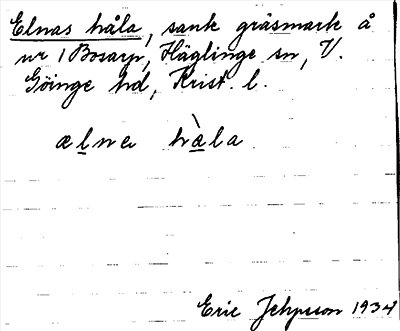 Elnas håla, sank gräsmark å
nr 1 Bosarp, Häglinge sn, V.
Göinge hd, Krist. l.
ælna hàla
Eric Jeppsson 1934